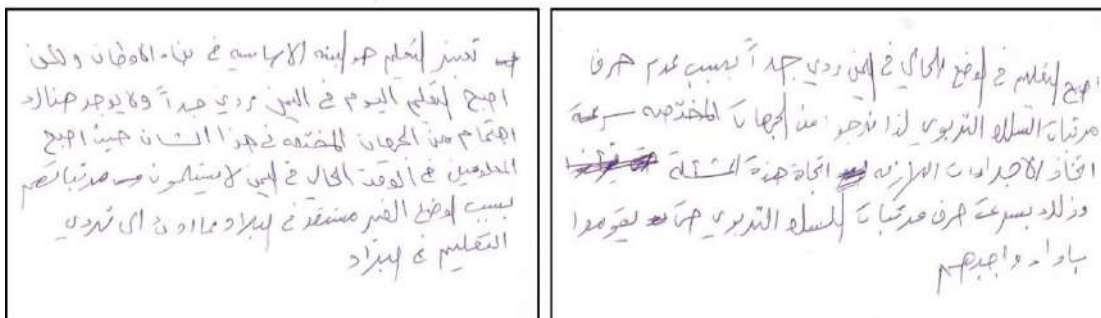 اصبح التعليم في الوضع الحالي في اليمن ردي جداً بسبب عدم صرف
مرتبات السلك التربوي لذا نرجو من الجهات المختصه سرعة
اتخاذ الاجراءات اللازمه اتجاة هذة المشكلة
وذلك بسرعة صرف مرتبات السلك التربوي حتى يقوموا
باداء واجبهم
تعتبر التعليم هو البنه الاساسيه في بناء الاوطان ولكن
اصبح التعليم اليوم في اليمن ردي جداً ولا يوجد هناك
اهتمام من الجهات المختصه في هذا الشان حيث اصبح
المعلمين في الوقت الحالي في اليمن لا يستلمون مرتباتهم
بسبب الوضع الغير مستقر في البلاد مما ادى الى تردي
التعليم في البلاد